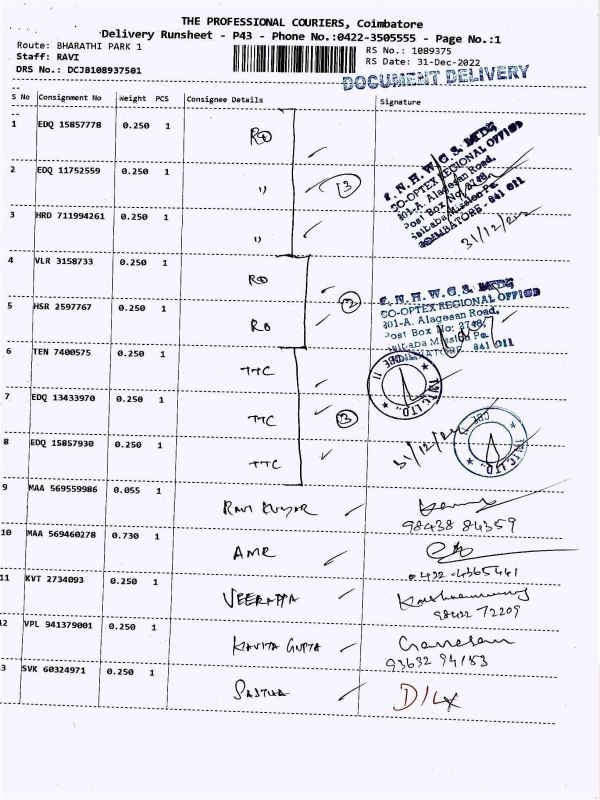 THE PROFESSIONAL COURIERS, Coimbatore
Delivery Runsheet - P43 - Phone No.:0422-3505555 - Page No.:1
Route: BHARATHI PARK 1
RS No.: 1089375
Staff: RAVI
RS Date: 31-Dec-2022
DRS No.: DCJB108937501
DOCUMENT DELIVERY
S No Consignment No Weight PCS Consignee Details Signature
1 EDQ 15857778 0.250 1 RO
2 EDQ 11752559 0.250 1 " 3
3 HRD 711994261 0.250 1 "
CO-OPTEX REGIONAL OFFICE
201-A, Alagesan Road,
Post Box No: 2748,
COIMBATORE - 641 011
31/12/22
4 VLR 3158733 0.250 1 RO
5 HSR 2597767 0.250 1 RO 2
T. N. H. W. C. S. LTD
CO-OPTEX REGIONAL OFFICE
201-A, Alagesan Road,
Post Box No: 2748,
641 011
6 TEN 7400575 0.250 1 TTC
7 EDQ 13433970 0.250 1 TTC 3
8 EDQ 15857930 0.250 1 TTC
31/12/22
9 MAA 569559986 0.055 1 RAVI KUMAR
98438 84359
10 MAA 569460278 0.730 1 AMR
0422-4365441
11 KVT 2734093 0.250 1 VEERAPPA
98422 72209
12 VPL 941379001 0.250 1 KAVITA GUPTA Ganesan
93632 94183
13 SVK 60324971 0.250 1 D/L